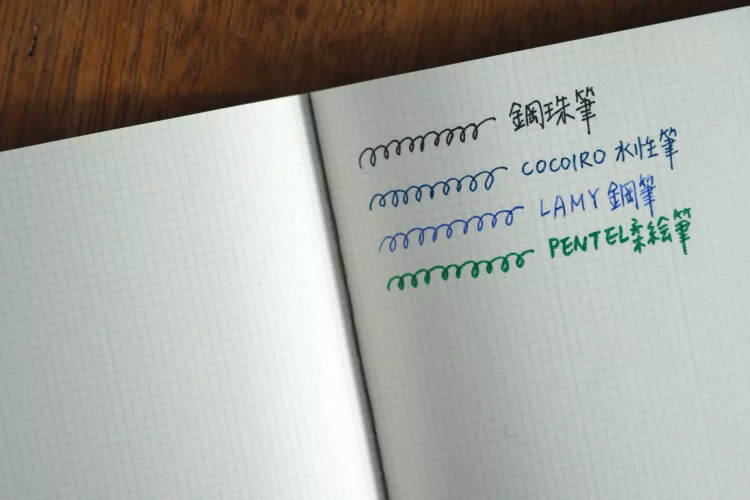 鋼珠筆
COCOIRO 水性筆
LAMY 鋼筆
PENTEL柔絵筆